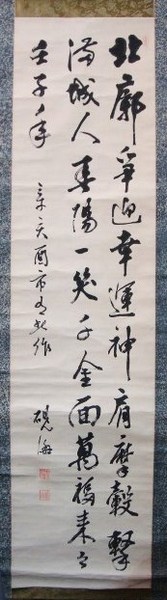 北廓爭迎幸運神肩摩轂擊
滿城人春陽一笑千金面萬福来々
壬子年
辛亥酉市即作 硯海